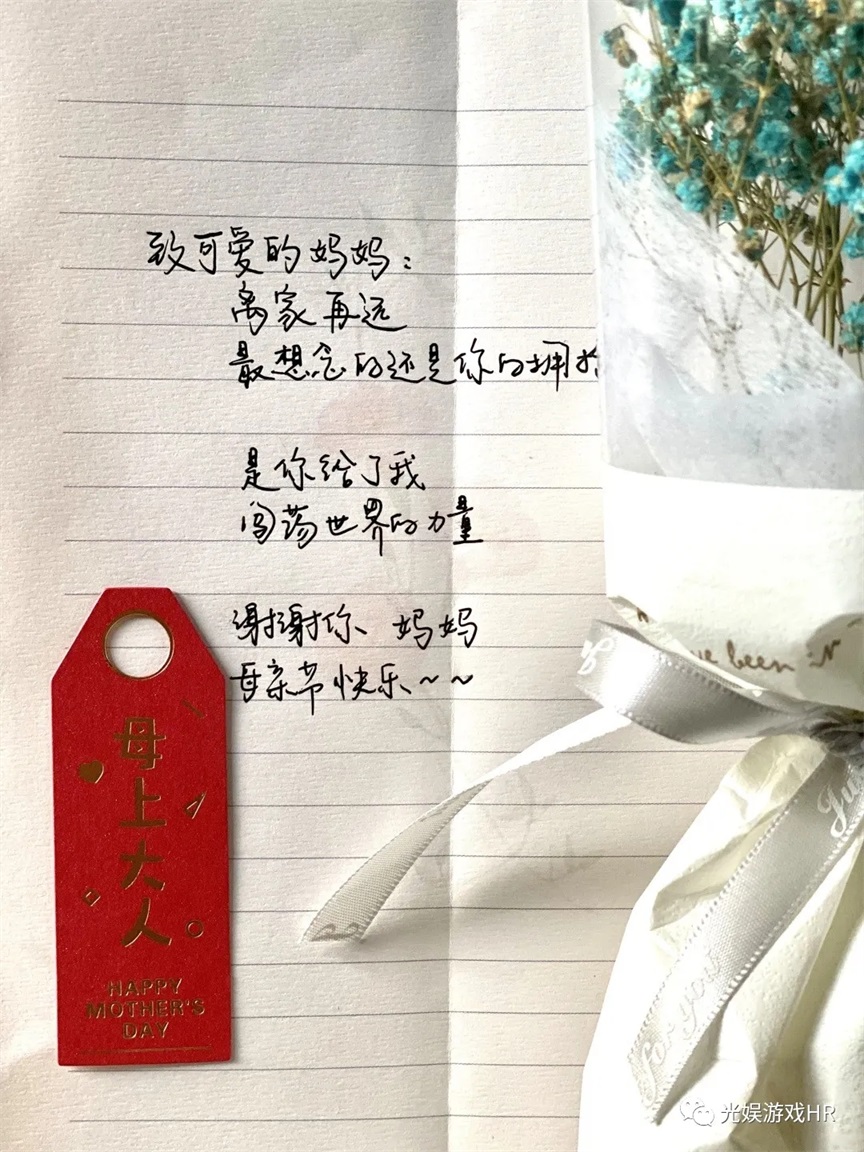 致可爱的妈妈：
离家再远
最想念的还是你的拥
是你给了我
闯荡世界的力量
谢谢你、妈妈
母亲节快乐~~
母上大人
HAPPY
MOTHER'S
DAY
been
for you
光娱游戏HR